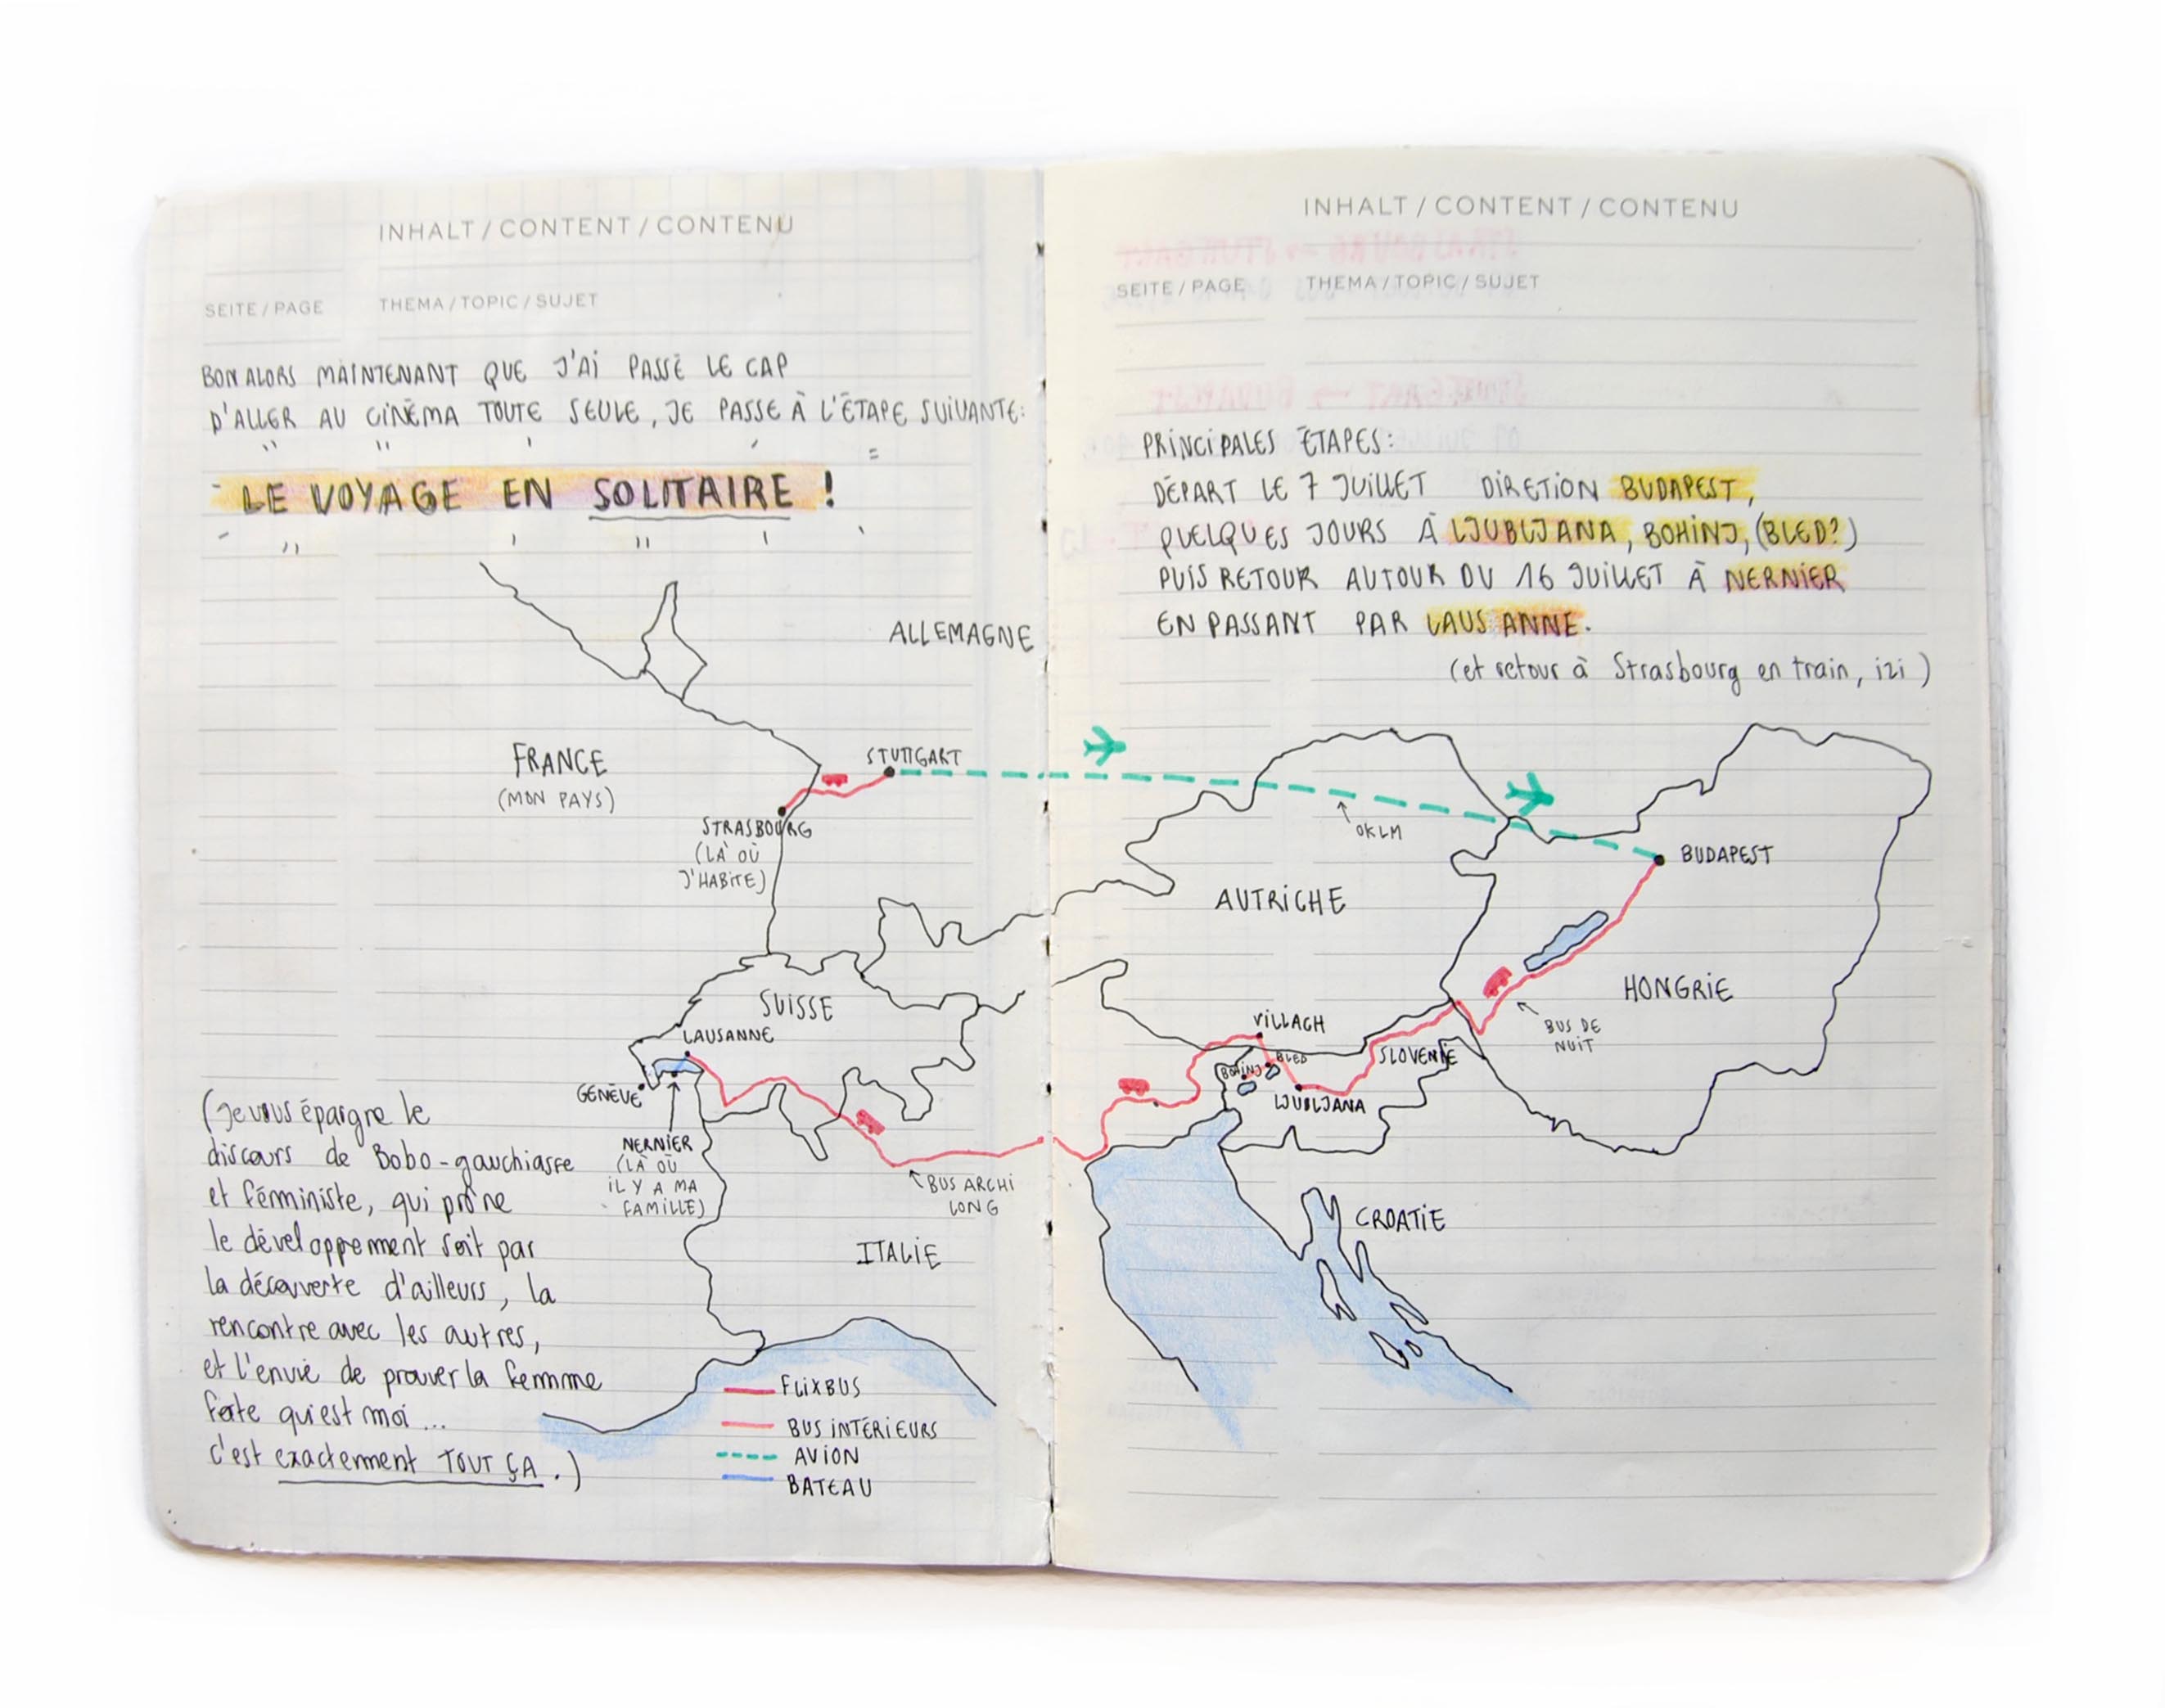 INHALT / CONTENT / CONTENU
SEITE / PAGE THEMA / TOPIC / SUJET
BON ALORS MAINTENANT QUE J'AI PASSÉ LE CAP
D'ALLER AU CINÉMA TOUTE SEULE, JE PASSE À L'ÉTAPE SUIVANTE:
LE VOYAGE EN SOLITAIRE !
ALLEMAGNE
FRANCE
(MON PAYS)
STUTTGART
STRASBOURG
(LÀ OÙ
J'HABITE)
SUISSE
LAUSANNE
GENÈVE
NERNIER
(LÀ OÙ
IL Y A MA
FAMILLE)
BUS ARCHI
LONG
ITALIE
(Je vous épargne le
discours de Bobo-gauchiasse
et féministe, qui prône
le développement soit par
la découverte d'ailleurs, la
rencontre avec les autres,
et l'envie de prouver la femme
forte qui est moi...
c'est exactement TOUT ÇA.)
FLIXBUS
BUS INTÉRIEURS
AVION
BATEAU
INHALT / CONTENT / CONTENU
SEITE / PAGE THEMA / TOPIC / SUJET
PRINCIPALES ÉTAPES:
DÉPART LE 7 JUILLET DIRETION BUDAPEST,
QUELQUES JOURS À LJUBLJANA, BOHINJ, (BLED?)
PUIS RETOUR AUTOUR DU 16 JUILLET À NERNIER
EN PASSANT PAR LAUSANNE.
(et retour à Strasbourg en train, izi)
OKLM
BUDAPEST
AUTRICHE
HONGRIE
BUS DE
NUIT
VILLACH
BLED
BOHINJ
SLOVENIE
LJUBLJANA
CROATIE